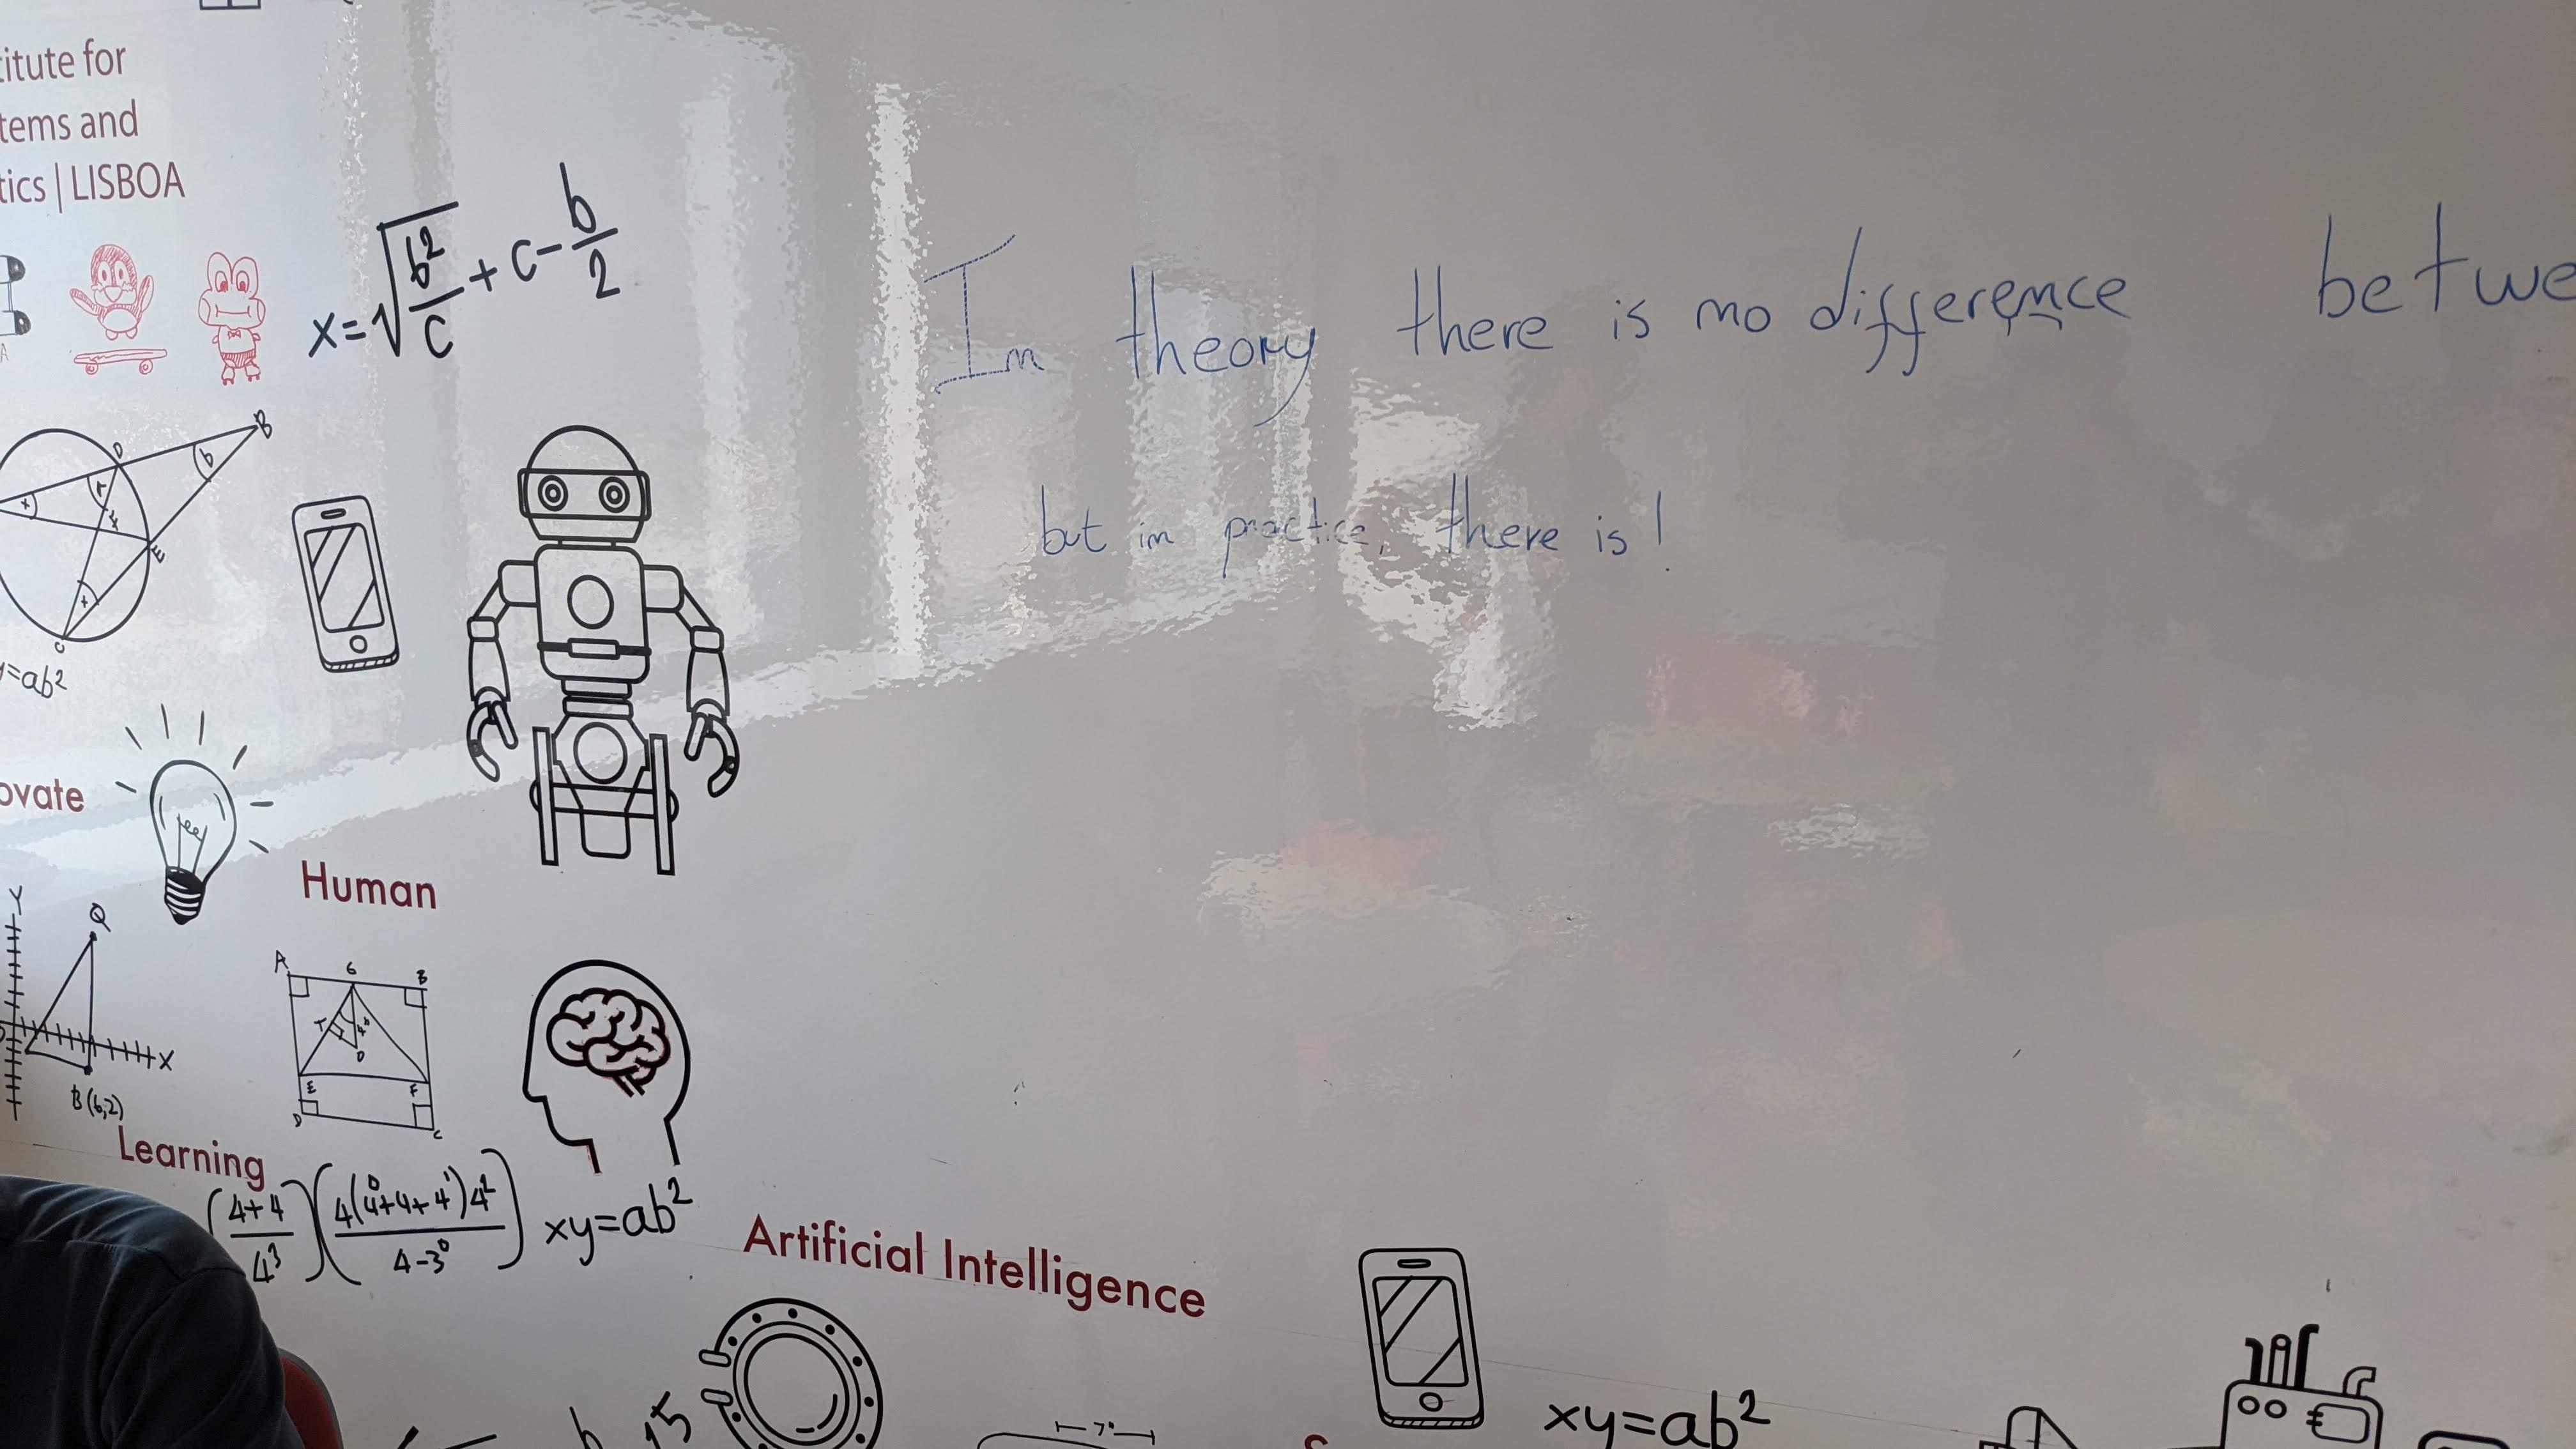 itute for
tems and
tics | LISBOA
x=√b²/c + c - b/2
In theory there is no difference betwe
but in practice, there is!
B
D
b
x
E
x
C
y=ab²
ovate
Human
Y
Q
X
B(6,2)
A G B
T
D
E F
D C
Learning
(4+4/4³)(4(4⁰+4+4¹)4²/4-3⁰) xy=ab²
Artificial Intelligence
b 15
7"
xy=ab²